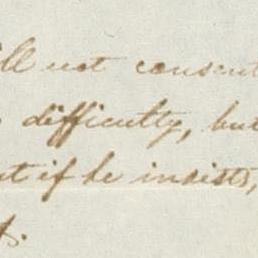 ill not consent
difficulty, but
ut if he insists,